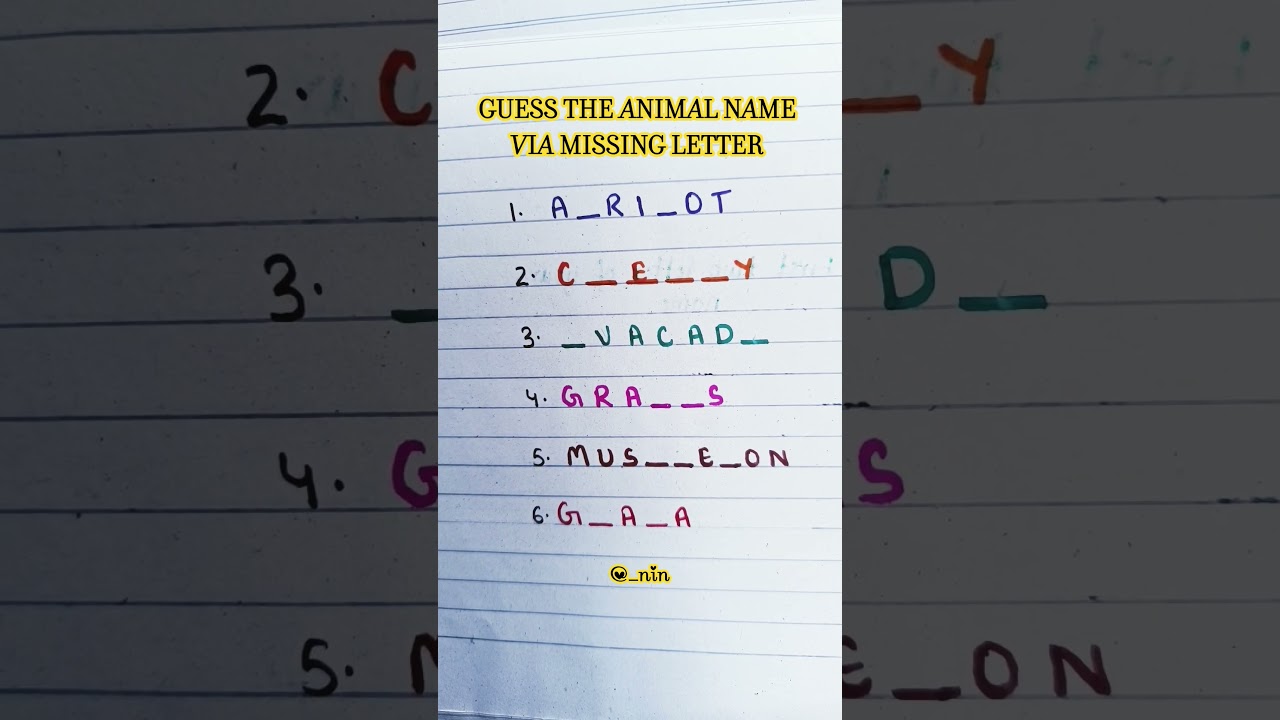 GUESS THE ANIMAL NAME
VIA MISSING LETTER
1. A_RI_OT
2. C_E__Y
3. _VACAD_
4. GRA__S
5. MUS__E_ON
6. G_A_A
@_nin
2. C
_Y
3. _
D_
4. G
S
5. M
E_ON